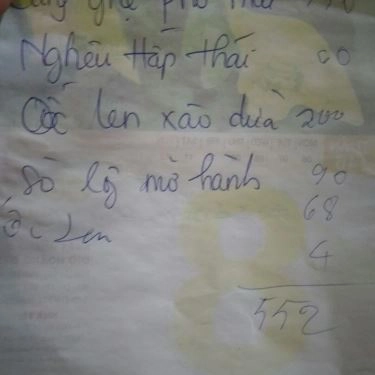 ghẹ phô mai
Nghêu Hấp thái 60
Ốc len xào dừa 200
Sò mỡ hành 90
68
Ốc Len
4
552